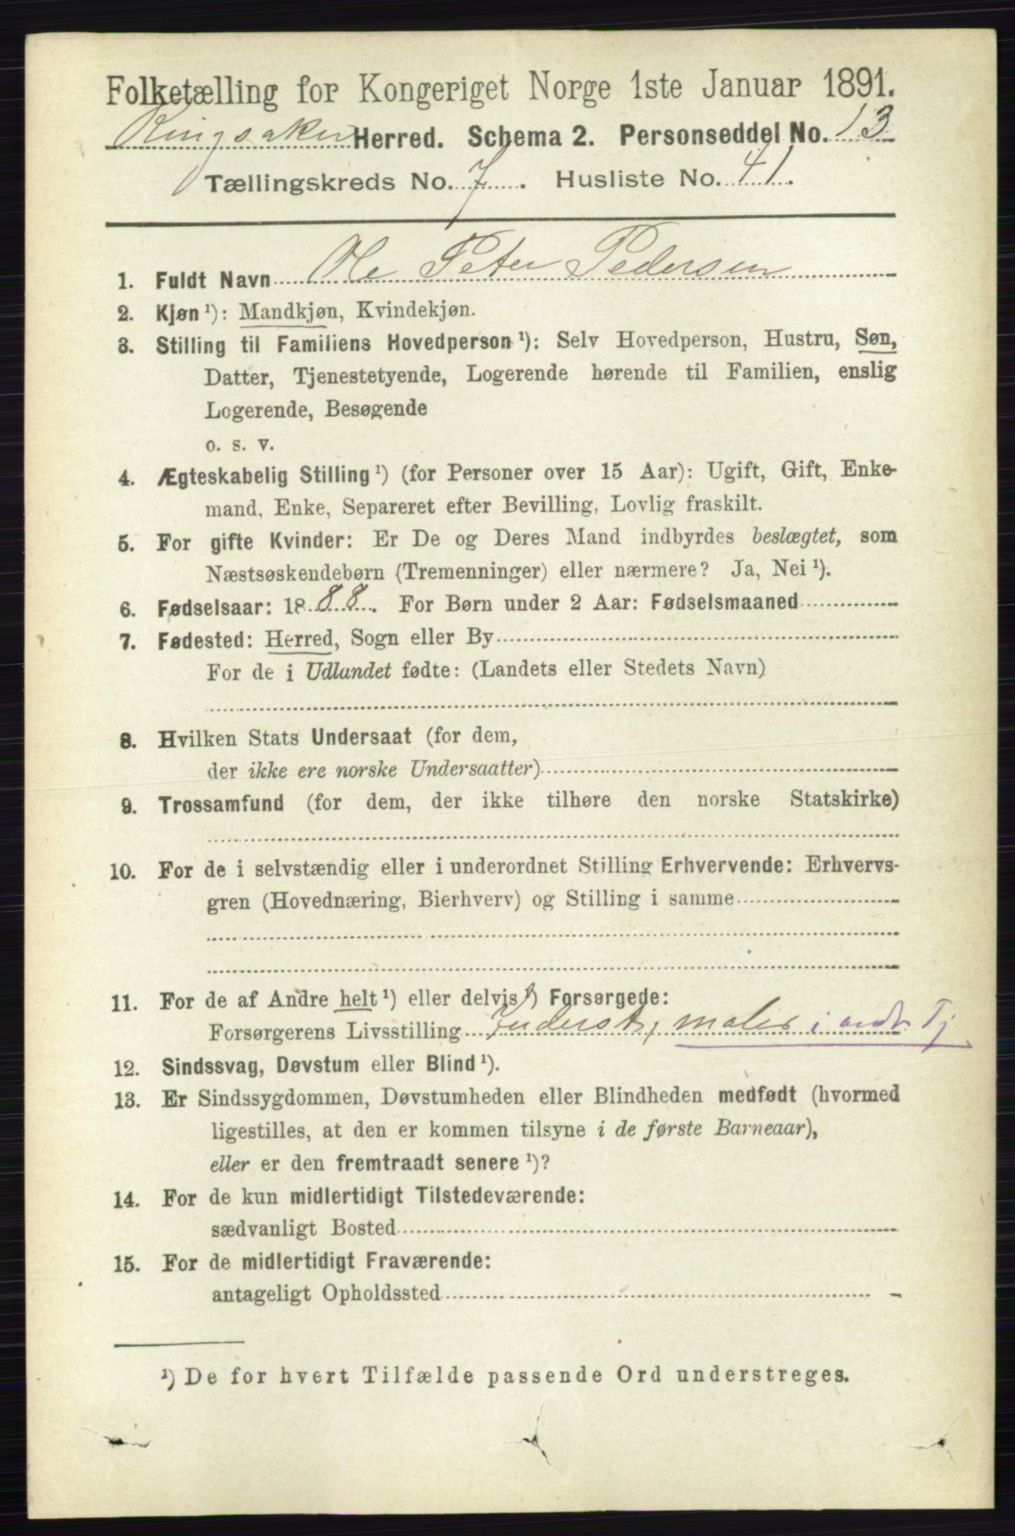 Folketælling for Kongeriget Norge 1ste Januar 1891.
Ringsaker Herred. Schema 2. Personseddel No. 13
Tællingskreds No. 7. Husliste No. 41.
1. Fuldt Navn Ole Peter Pedersen
2. Kjøn ¹): Mandkjøn, Kvindekjøn.
3. Stilling til Familiens Hovedperson ¹): Selv Hovedperson, Hustru, Søn,
Datter, Tjenestetyende, Logerende hørende til Familien, enslig
Logerende, Besøgende
o. s. v.
4. Ægteskabelig Stilling ¹) (for Personer over 15 Aar): Ugift, Gift, Enke-
mand, Enke, Separeret efter Bevilling, Lovlig fraskilt.
5. For gifte Kvinder: Er De og Deres Mand indbyrdes beslægtet, som
Næstsøskendebørn (Tremenninger) eller nærmere? Ja, Nei ¹).
6. Fødselsaar: 1888. For Børn under 2 Aar: Fødselsmaaned
7. Fødested: Herred, Sogn eller By
For de i Udlandet fødte: (Landets eller Stedets Navn)
8. Hvilken Stats Undersaat (for dem,
der ikke ere norske Undersaatter)
9. Trossamfund (for dem, der ikke tilhøre den norske Statskirke)
10. For de i selvstændig eller i underordnet Stilling Erhvervende: Erhvervs-
gren (Hovednæring, Bierhverv) og Stilling i samme
11. For de af Andre helt ¹) eller delvis ¹) Forsørgede:
Forsørgerens Livsstilling Inderst, maler i andr Tj
12. Sindssvag, Døvstum eller Blind ¹).
13. Er Sindssygdommen, Døvstumheden eller Blindheden medfødt (hvormed
ligestilles, at den er kommen tilsyne i de første Barneaar),
eller er den fremtraadt senere ¹)?
14. For de kun midlertidigt Tilstedeværende:
sædvanligt Bosted
15. For de midlertidigt Fraværende:
antageligt Opholdssted
¹) De for hvert Tilfælde passende Ord understreges.